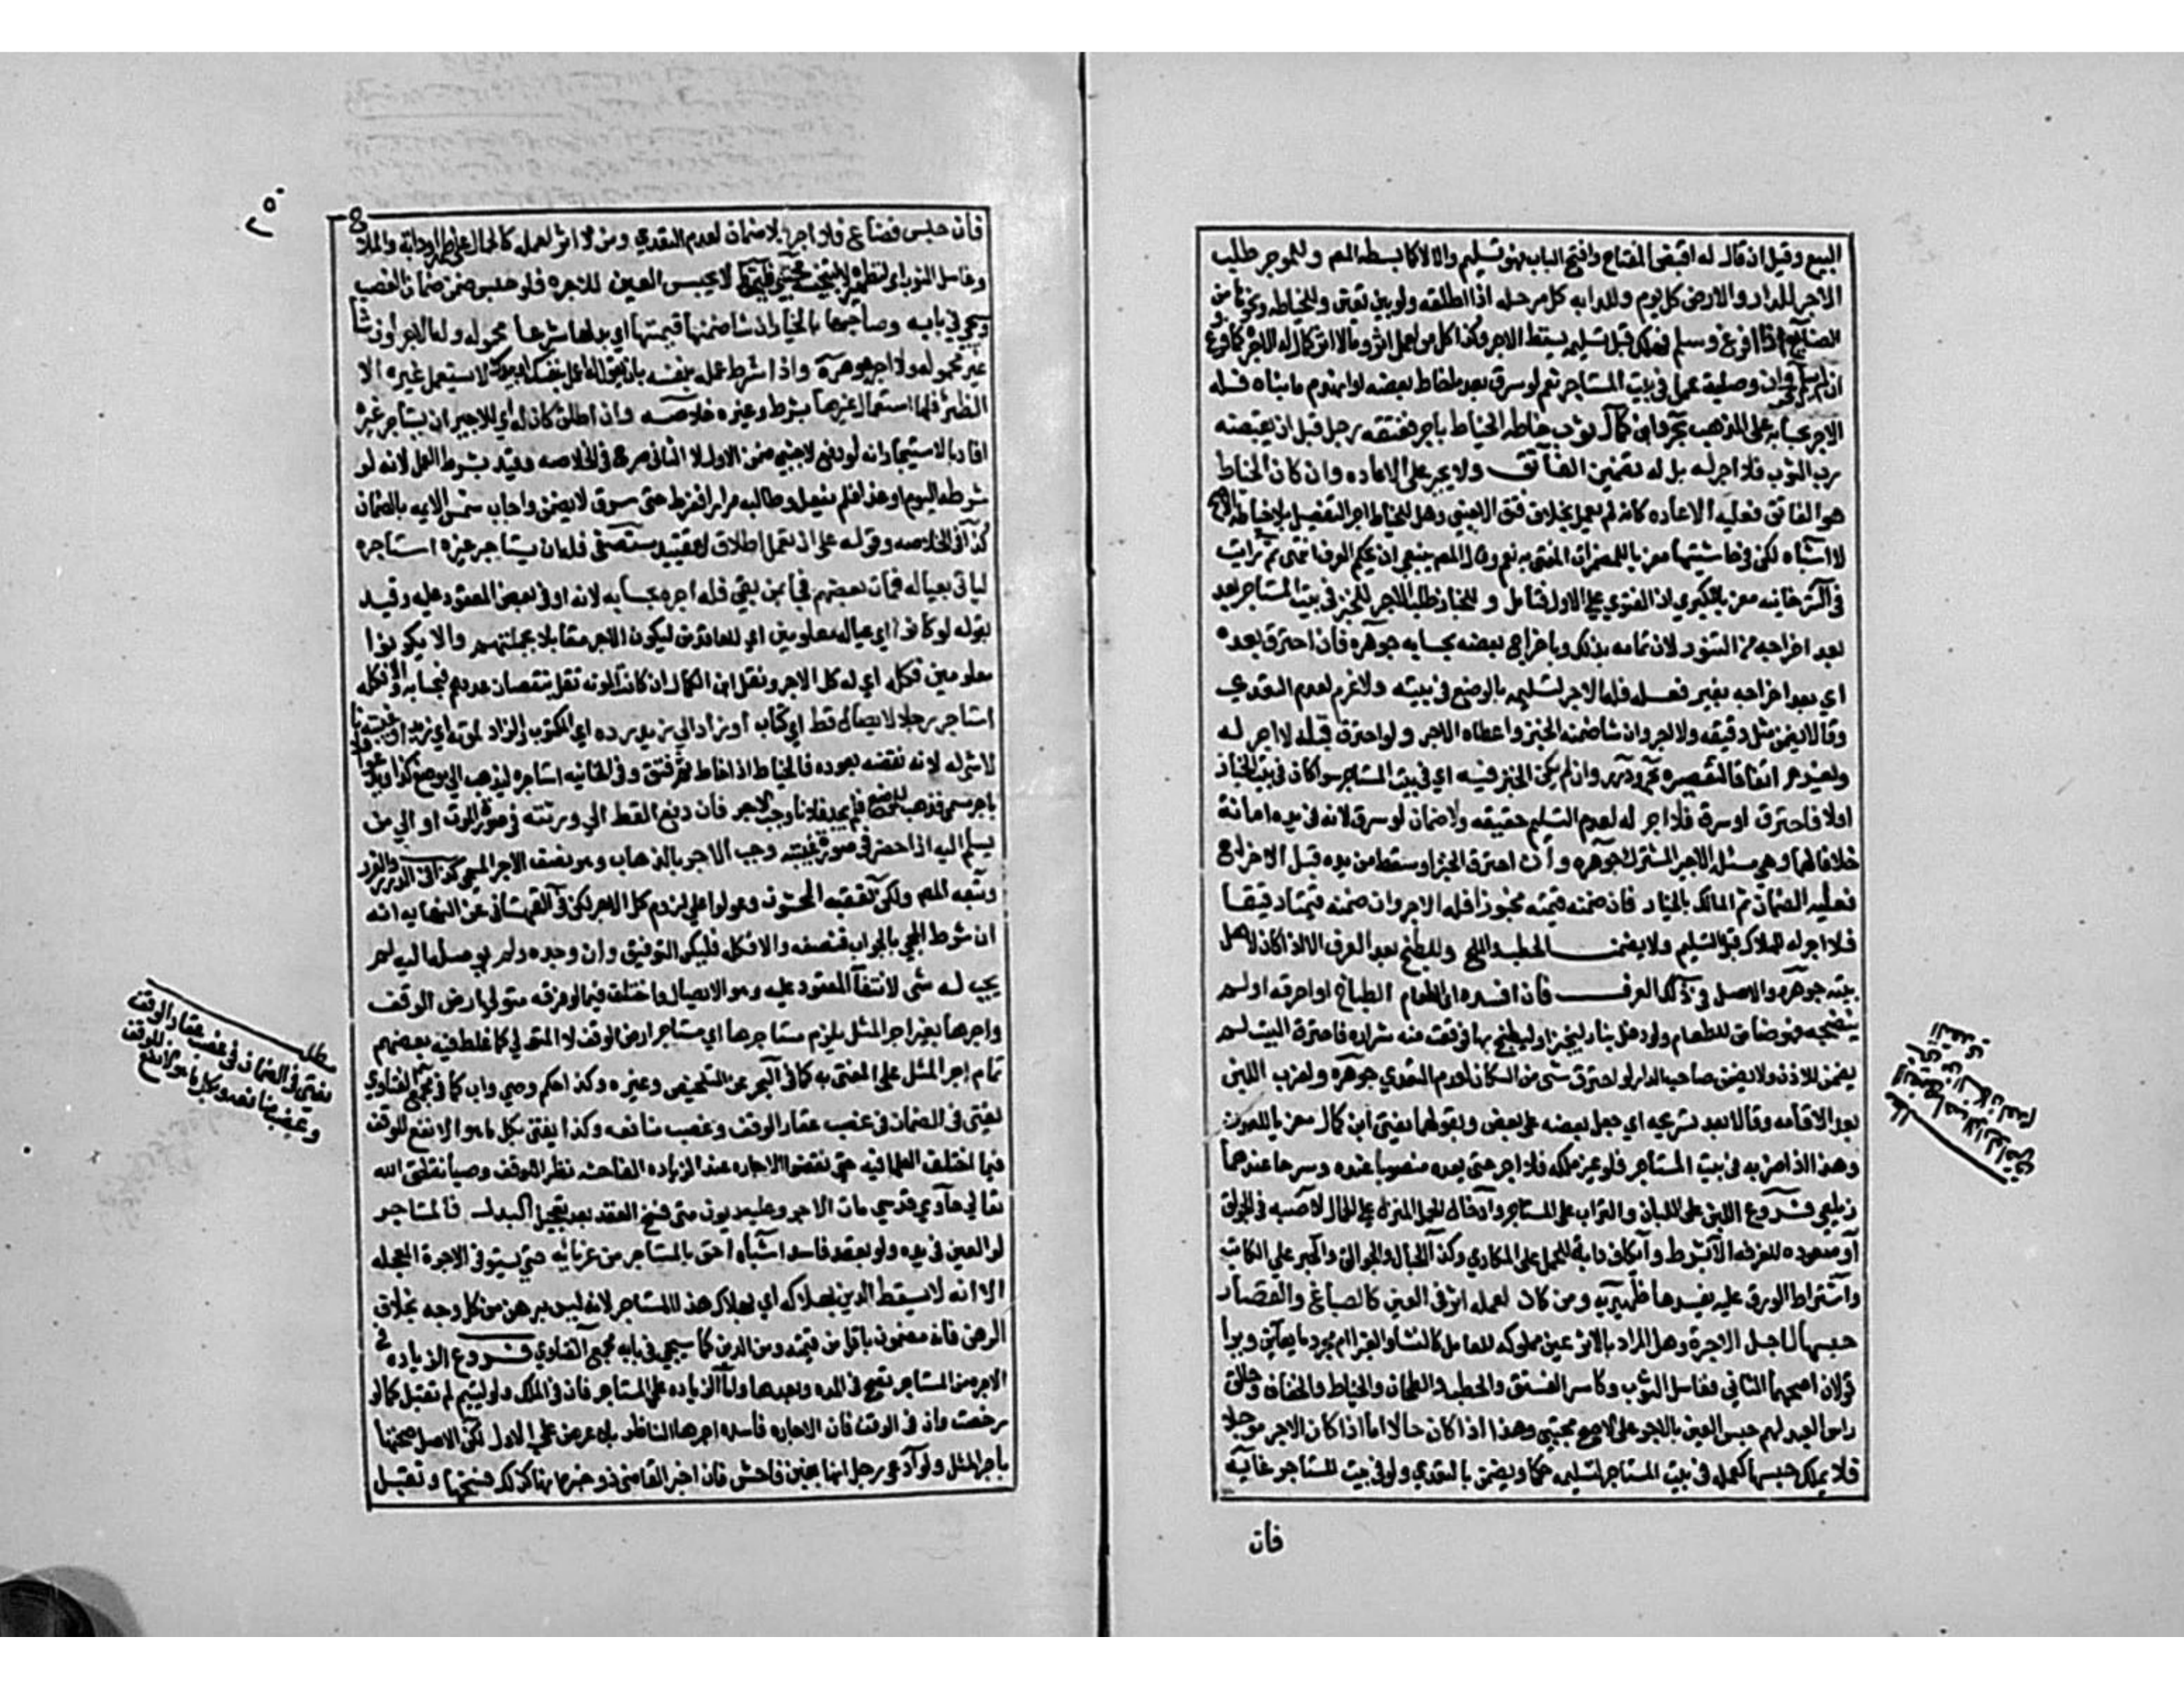 البيع وقيل ان قال له اقبض المفتاح وافتح الباب فهو تسليم والا لا كما بسطه المص وللموجر طلب
الاجر للدار والارض كل يوم وللدابه كل مرحله اذا اطلقه ولو بين تعين وللخياطه ونحوها من
الصنايع اذا فرغ وسلم فهلكه قبل تسليمه يسقط الاجر وكذا كل من لعمله اثر وما لا اثر له كحمال له الاجر كما فرغ
وان لم يسلم وان وصلية عمل في بيت المستاجر نعم لو سرق بعد ما خاط بعضه او انهدم ما بناه فله
الاجر بحسابه على المذهب بحر وابن كمال ثوب خاطه الخياط باجر ففتقه رجل قبل ان يقبضه
رب الثوب فلا اجر له بل له تضمين الفاتق ولا يجبر على الاعاده وان كان الخياط
هو الفاتق فعليه الاعاده كانه لم يعمل بخلاف فتق الاجنبي وهل للخياط اجر التفصيل بلا خياطه الاصح
لا اشباه لكن في حاشيتها معزيا للمضمرات المفتى به نعم وقال المص ينبغي ان يحكم العرف انتهى ثم رايت
في التترخانيه معزيا للكبرى ان الفتوي علي الاول فتامل وللخباز طلب الاجر للخبز في بيت المستاجر بعد
بعد اخراجه من التنور لان تمامه بذلك وباخراج بعضه بحسابه جوهره فان احترق بعده
اي بعد اخراجه بغير فعله فله الاجر لتسليمه بالوضع في بيته ولا غرم لعدم التعدي
وقالا يضمن مثل دقيقه ولا اجر وان شا ضمنه الخبز واعطاه الاجر ولو احترق قبله لا اجر له
ويغرم اتفاقا لتقصيره بحر ودرر وان لم يكن الخبز فيه اي في بيت المستاجر سوا كان في بيت الخباز
اولا فاحترق او سرق فلا اجر له لعدم التسليم حقيقه ولا ضمان لو سرق لانه في يده امانة
خلافا لهما وهي مسئلة الاجير المشترك جوهره وان احترق الخبز او سقط من يده قبل الاخراج
فعليه الضمان ثم المالك بالخيار فان ضمنه قيمته مخبوزا فله الاجر وان ضمنه قيمته دقيقا
فلا اجر له للهلاك قبل التسليم ولا يضمن الحطب والملح وللطبخ بعد الغرف الا اذا كان لاهل
بيته جوهره والاصل في ذلك العرف فان افسده اي الطعام الطباخ او احرقه او لم
ينضجه فهو ضامن للطعام ولو دخل بنار ليخبز او ليطبخ بها فوقعت منه شراره فاحترق البيت لم
يضمن للاذن ولا يضمن صاحب الدار لو احترق شي من السكان لعدم التعدي جوهره ولضرب اللبن
بعد الاقامه وقالا بعد تشريجه اي جعل بعضه على بعض وبقولهما يفتي ابن كمال معزيا للعيون
وهذا اذا ضربه في بيت المستاجر فلو غير ملكه فلا اجر حتى يعده منصوبا عنده ومشرجا عندهما
زيلعي فروع اللبن على اللبان والتراب على المستاجر وادخال الحمل المنزل على الحمال لا صبه في الجوالق
او صعوده للغرفه الا بشرط واكاف دابة للحمل على المكاري وكذا الحبال والجوالق والحبر على الكاتب
واشتراط الورق عليه يفسدها ظهيريه ومن كان لعمله اثر في العين كالصباغ والقصار
حبسها لاجل الاجرة وهل المراد بالاثر عين مملوكه للعامل كالنشا والغرا ام مجرد ما يعاين ويرا
قولان اصحهما الثاني فغاسل الثوب وكاسر الفستق والحطب والطحان والخياط والخفاف وحالق
راس العبد لهم حبس العين بالاجر على الاصح مجتبى وهذا اذا كان حالا اما اذا كان الاجر موجلا
فلا يملك حبسها كعمله في بيت المستاجر لتسليمه حكما ويضمن بالتعدي ولو في بيت المستاجر غايه
فان
مطلب
٢٥٠
فان حبس فضاع فلا اجر ولا ضمان لعدم التعدي ومن لا اثر لعمله كالحمال على ظهر او دابة والملاح
وغاسل الثوب اي لتطهيره لا لتحسينه مجتبى لا يحبس العين للاجره فلو حبس ضمن ضمان الغصب
وسيجي في بابه وصاحبها بالخيار ان شا ضمنها قيمتها اي بدلها شرعا محموله وله الاجر وان شا
غير محموله ولا اجر جوهره واذا شرط عمله بنفسه بان يقول له اعمل بنفسك او بيدك لا يستعمل غيره الا
الظئر فلها استعمال غيرها بشرط وغيره خلاصه وان اطلق كان له اي للاجير ان يستاجر غيره
افاد بالاستيجار انه لو دفع لاجنبي ضمن الاول لا الثاني صرح في الخلاصه وقيد بشرط العمل لانه لو
شرطه اليوم او غدا فلم يفعل وطالبه مرارا ففرط حتى سرق لا يضمن واجاب شمس الايمه بالضمان
كذا في الخلاصه وقوله على ان تعمل اطلاق لا تقييد مستصفى فله ان يستاجر غيره استاجره
لياتي بعياله فمات بعضهم فجا بمن بقي فله اجره بحسابه لانه اوفى بعض المعقود عليه وقيد
بقوله لو كانوا اي عياله معلومين اي للعاقدين ليكون الاجر مقابلا بجملتهم والا يكونوا
معلومين فكله اي له كل الاجر ونقل ابن الكمال ان كانت المونه تقل بنقصان عددهم فبحسابه والا فكله
استاجر رجلا لايصال قط اي كتاب او زاد الى زيد ان رده اي المكتوب والزاد لموته اي زيد او غيبته
لا شي له لانه نقضه بعوده كالخياط اذا خاط ثم فتق وفي الخانيه استاجره ليذهب الى موضع كذا ويدعو فلانا
باجر مسمى فذهب للموضع فلم يجد فلانا وجب الاجر فان دفع القط الى ورثته في صورة الموت او الى من
يسلم اليه اذا حضر في صورة غيبته وجب الاجر بالذهاب وهو نصف الاجر المسمى كذا في الدرر والغرر
وتبعه المص ولكن تعقبه المحشون وعولوا على لزوم كل الاجر لكن في القهستاني عن النهايه انه
ان شرط المجي بالجواب فنصفه والا فكله فليكن التوفيق وان وجده ولم يوصله اليه لم
يجب له شي لانتفا المعقود عليه وهو الايصال واختلف فيما لو مزقه متولي ارض الوقف
واجرها بغير اجر المثل يلزم مستاجرها اي مستاجر ارض الوقف لا المتولي كما غلط فيه بعضهم
تمام اجر المثل على المفتى به كما في البحر عن التلخيص وغيره وكذا حكم وصي واب كما في مجمع الفتاوي
يفتى في الضمان في غصب عقار الوقف وغصب منافعه وكذا يفتى بكل ما هو الانفع للوقف
فيما اختلف العلما فيه حتى نقضوا الاجاره عند الزياده الفاحشه نظرا للوقف وصيانة لحق الله
تعالى حاوي قدسي مات الاجر وعليه ديون حتى فسخ العقد بعد تعجيل البدل فالمستاجر
لو العين في يده ولو بعقد فاسد اشباه احق بالمستاجر من غرمائه حتى يستوفي الاجرة المعجله
الا انه لا يسقط الدين بهلاكه اي بهلاك هذا المستاجر لانه ليس برهن من كل وجه بخلاف
الرهن فانه مضمون باقل من قيمته ومن الدين كما سيجي في بابه مجمع الفتاوي فروع الزياده في
الاجر من المستاجر تصح في المده وبعدها واما الزياده على المستاجر فان في الملك ولو ليتيم لم تقبل كما لو
رخصت وان في الوقف فان الاجاره فاسده اجرها الناظر بلا عرض على الاول لكن الاصل صحتها
باجر المثل ولو ادعى رجل انها بغبن فاحش فان اخبر القاضي ذو خبره انها كذلك فسخها وتقبل
مطلب
يفتى في الضمان في غصب عقار الوقف
وغصب منافعه وبكل ما هو الانفع للوقف